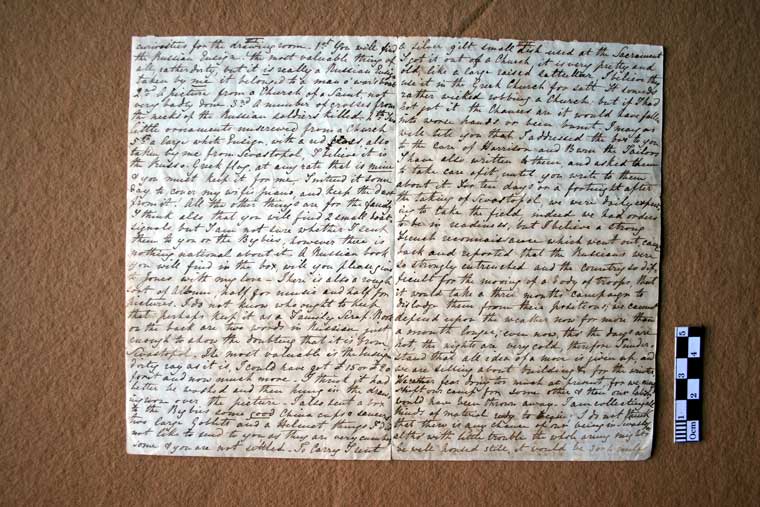 curiosities for the drawing room. 1st You will find
the Russian Ensign. the most valuable thing of
all, rather dirty, but it is really a Russian Ensign
taken by me. belonged to a man o' war's boat
2nd A picture from a Church of a Saint, not
very badly done. 3rd A number of crosses from
the necks of the Russian soldiers killed. 4th Two
little ornaments unscrewed from a Church
5th a large white Ensign, with a red cross also
taken by me from Sevastopol, I believe it is
the Russo Greek flag, at any rate that is mine
& you must keep it for me. I intend it some
day to cover my wife's piano, and keep the dust
from it. All the other things are for the family
I think also that you will find 2 small boat
signals but I am not sure whether I sent
them to you or the Bybies, however there is
nothing national about it. A Russian book
you will find in the box, will you please give
to Jones with my love. There is also a rough
sort of Album, half for music and half for
pictures. I do not know who ought to keep
that perhaps keep it as a Family Scrap Book
on the back are two words in Russian just
enough to show the doubting that it is from
Sevastopol. The most valuable is the Ensign
dirty rag as it is, I could have got £15 or £20
for it and now much more. I think it had
better be washed and then hung in the
over the picture. I also sent a box
to the Bybies some good China cups & saucers
two large Goblets and a Helmet things I did
not like to send to you as they are very cumber
some & you are not settled. To Carry I sent
a silver gilt small dish used at the Sacrament
I got it out of a Church, it is very pretty and
old, like a large raised saltcellar, I believe they
use it in the Greek Church for salt. It sounds
rather wicked robbing a Church, but if I had
not got it the chances are it would have fallen
into worse hands or been burnt. I may as
well tell you that I addressed the box to you
to the care of Harrison and Born the Tailors
I have also written to them and asked them
to take care of it, until you write to them
about it. For ten days or a fortnight after
the taking of Sevastopol, we were daily expect
ing to take the field indeed we had orders
to be in readiness, but I believe a strong
French reconnaissance which went out came
back and reported that the Russians were
so strongly entrenched and the country so dif
ficult for the moving of a body of troops, that
it would take a three months campaign to
dislodge them from their position, we cannot
depend upon the weather now for more than
a month longer; even now, tho' the days are
hot the nights are very cold, therefore I under
stand that all idea of a move is given up, and
we are setting about building for the winter
fear doing too much at present, for we may
shift our camp for some other & then our labour
would have been thrown away. I am collecting all
kinds of material ready to begin. I do not think
that there is any chance of our being in Sevastopol
altho' with little trouble the whole army might
be well housed still, it would be 3 or 4 miles